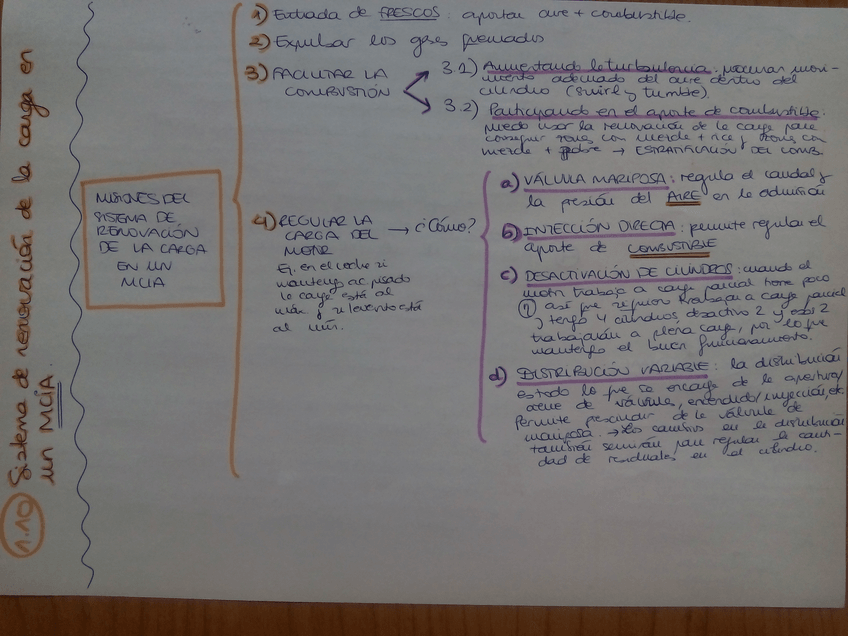 1.10 Sistema de renovación de la carga en
un MCIA.
MISIONES DEL
SISTEMA DE
RENOVACIÓN
DE LA CARGA
EN UN
MCIA
1) Entrada de FRESCOS: aportar aire + combustible.
2) Expulsar los gases quemados
3) FACILITAR LA
COMBUSTIÓN
3.1) Aumentando la turbulencia: procurar movi-
miento adecuado del aire dentro del
cilindro (swirl y tumble).
3.2) Participando en el aporte de combustible:
puedo usar la renovación de la carga para
conseguir zonas con mezcla + rica y zonas con
mezcla + pobre → ESTRATIFICACIÓN DEL COMB.
4) REGULAR LA
CARGA DEL
MOTOR
→ ¿Cómo?
Ej. en el coche si
mantengo ac. pisado
la carga está al
máx. y si levanto está
al mín.
a) VÁLVULA MARIPOSA: regula el caudal y
la presión del AIRE en la admisión
b) INYECCIÓN DIRECTA: permite regular el
aporte de COMBUSTIBLE
c) DESACTIVACIÓN DE CILINDROS: cuando el
motor trabaja a carga parcial tiene poco
η así que si quiero trabajar a carga parcial
y tengo 4 cilindros desactivo 2 y esos 2
trabajarán a plena carga, por lo que
mantengo el buen funcionamiento.
d) DISTRIBUCIÓN VARIABLE: la distribución
es todo lo que se encarga de la apertura/
cierre de válvula, encendido/inyección, etc.
Permite prescindir de la válvula de
mariposa. → Los cambios en la distribución
también servirán para regular la canti-
dad de residuales en el cilindro.